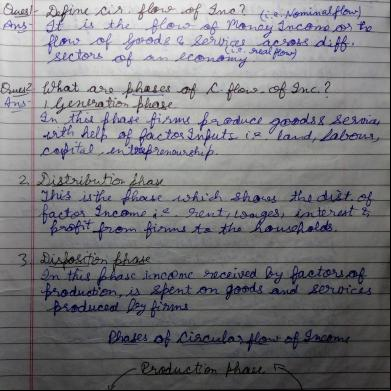 Ques1- Define cir. flow of Inc? (i.e. Nominal flow)
Ans- It is the flow of Money Income or the
flow of Goods & Services across diff.
sectors of an economy (i.e. real flow)
Ques2- What are phases of C. flow of Inc.?
Ans- 1. Generation phase
In this phase firms produce goods & service
with help of factor Inputs i.e. land, labour,
capital, entrepreneurship.
2. Distribution phase
This is the phase which shows the dist. of
factor Income i.e. rent, wages, interest &
profit from firms to the households.
3. Disposition phase
In this phase income received by factors of
production, is spent on goods and services
produced by firms
Phases of Circular flow of Income
Production phase